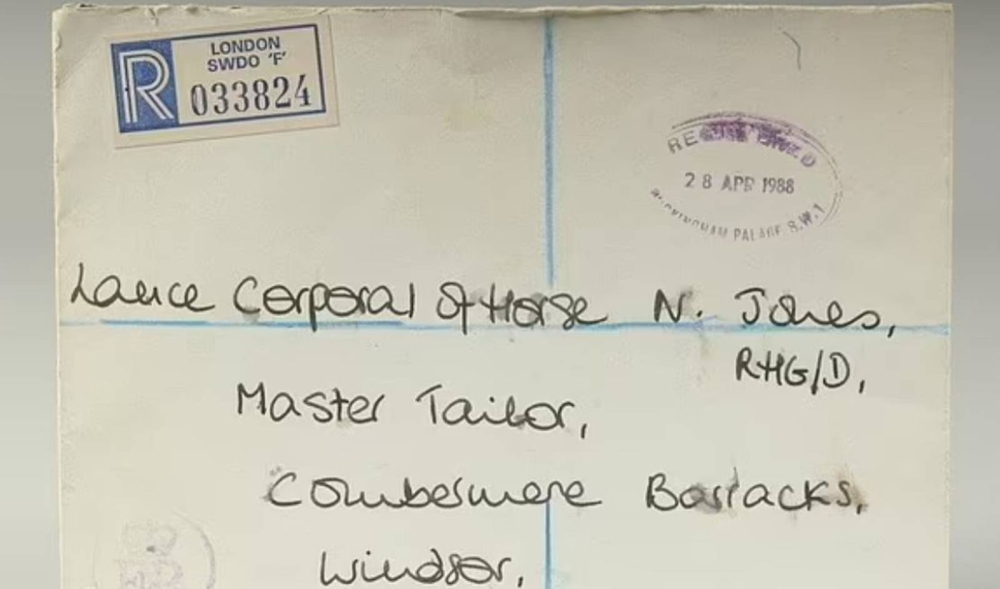 R
LONDON
SWDO 'F'
033824
28 APR 1988
PALACE S.W.1
Lance Corporal Of Horse N. Jones,
RHG/D,
Master Tailor,
Combermere Barracks,
Windsor,